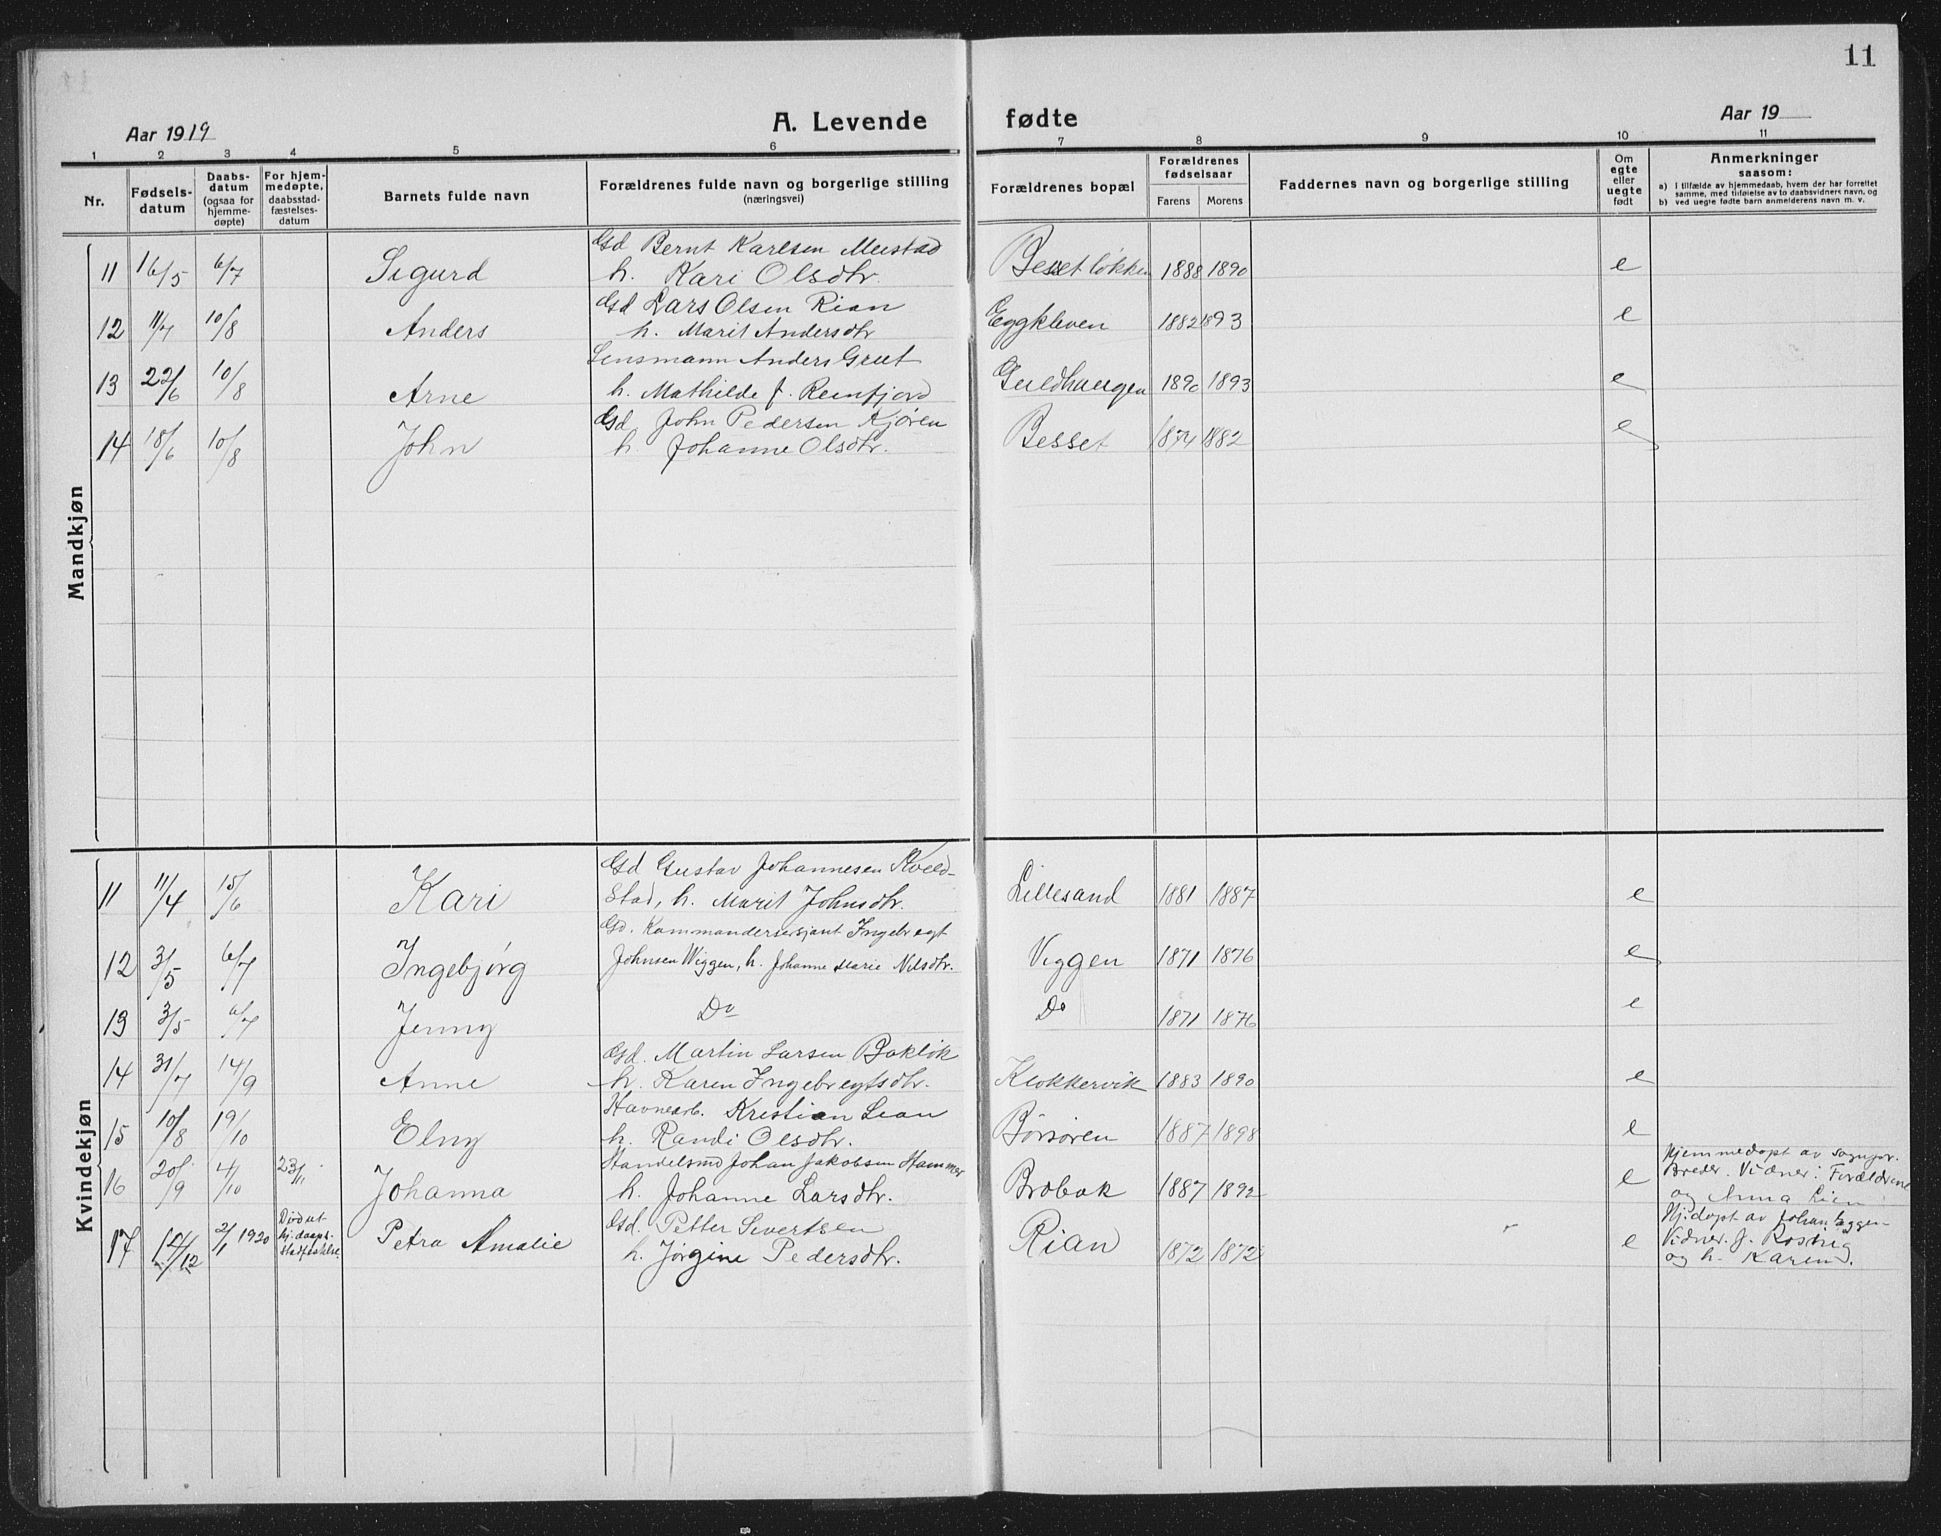 11
Aar 1919
A. Levende fødte
Aar 19
1 2 3 4 5 6 7 8 9 10 11
Nr.
Fødselsdatum
Daabsdatum (ogsaa for hjemmedøpte)
For hjemmedøpte, daabsstadfæstelsesdatum
Barnets fulde navn
Forældrenes fulde navn og borgerlige stilling (næringsvei)
Forældrenes bopæl
Forældrenes fødselsaar
Farens Morens
Faddernes navn og borgerlige stilling
Om egte eller uegte født
Anmerkninger saasom:
a) i tilfælde av hjemmedaab, hvem der har forrettet samme, med tilføielse av to daabsvidners navn, og
b) ved uegte fødte barn anmelderens navn m. v.
Mandkjøn
Gd Bernt Karlsen Meistad
11 16/5 6/7 Sigurd h. Kari Olsdtr. Bessetløkken 1888 1890 e
Gd Lars Olsen Rian
12 11/7 10/8 Anders h. Marit Andersdtr Eggkleven 1882 1893 e
Lensmann Anders Grut
13 22/6 10/8 Arne h. Mathilde f. Reinfjord Guldhaugen 1890 1893 e
Gd John Pedersen Kjøren
14 18/6 10/8 John h. Johanne Olsdtr. Besset 1874 1882 e
Kvindekjøn
Gd Gustav Johannesen Kveld-
11 11/4 15/6 Kari stad, h. Marit Johnsdtr. Lillesand 1881 1887 e
Gd. Kommandersersjant Ingebregt
12 3/5 6/7 Ingebjørg Johnsen Wiggen, h. Johanne Marie Nilsdtr. Viggen 1871 1876 e
13 3/5 6/7 Jenny Do Do 1871 1876 e
Gd. Martin Larsen Bakløk
14 31/7 14/9 Anne h. Karen Ingebregtsdtr. Klokkervik 1883 1890 e
Havnearb. Kristian Lian
15 10/8 19/10 Elny h. Randi Olsdtr. Børsøren 1887 1898 e
Handelsmd Johan Jakobsen Hammer
16 20/9 4/10 23/11 Johanna h. Johanne Larsdtr. Brøbak 1887 1892 e
Hjemmedøpt av sognepr.
Breder. Vidner: Forældrene
og Anna Lien
Gd. Petter Sivertsen
17 14/12 2/1 1920 Død ut. hj. daaps- stadfæstelse Petra Amalie h. Jørgine Pedersdtr. Rian 1872 1872 e
Hj.døpt av Johan
Vidner. J. Rostig
og h. Karen.